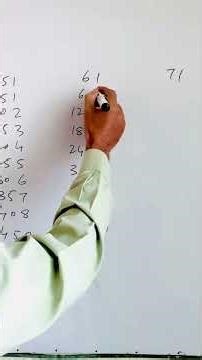 51 61 71
51 6
02 12
53 18
04 24
55 3
06
357
408